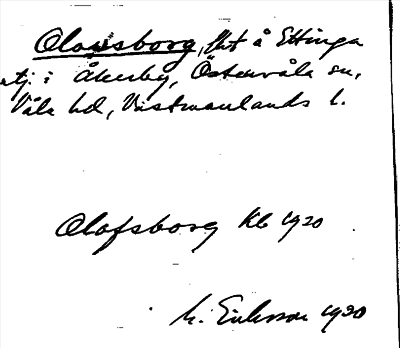 Olovsborg, lht å Ettinga
utj. i Åkerby, Östervåla sn,
Våla hd, Västmanlands l.
Olofsborg Kb 1920
M. Eriksson 1920